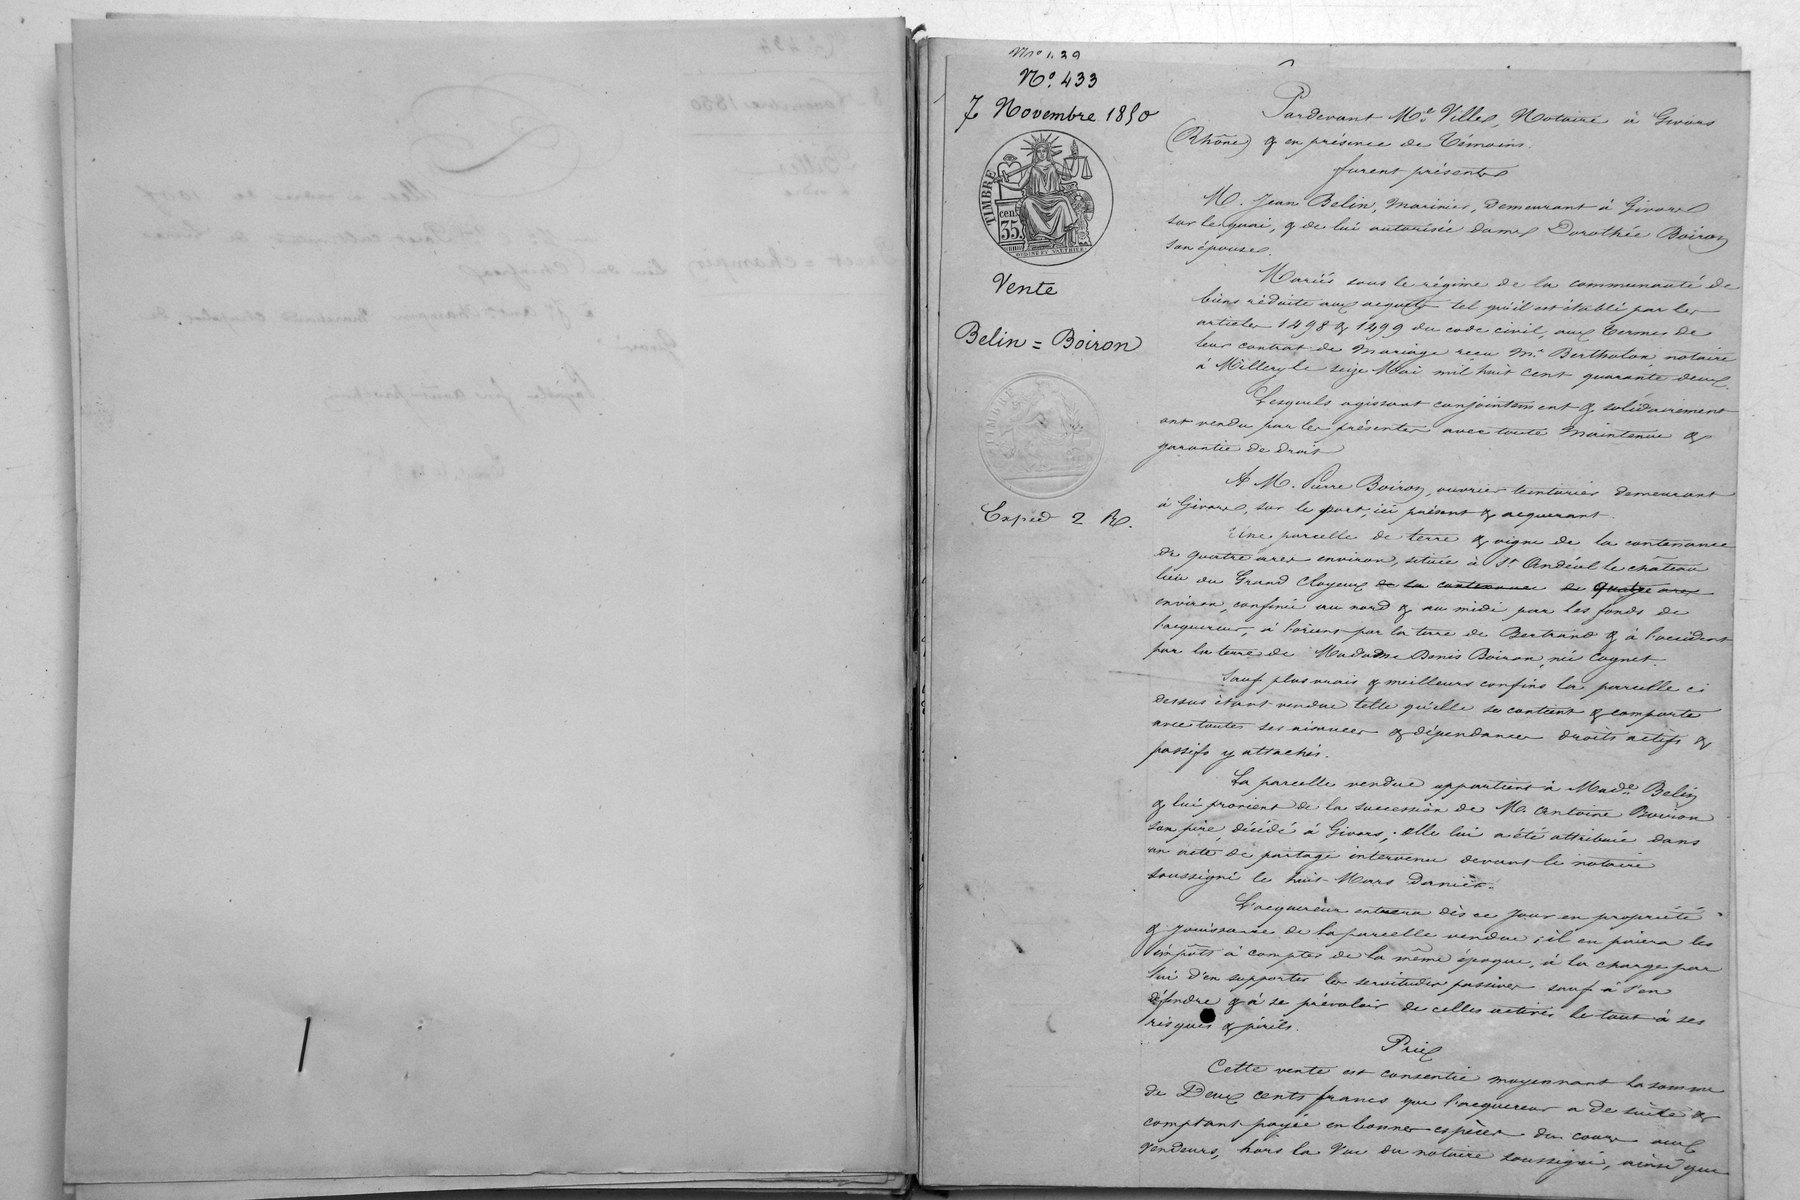 N° 1.29
N° 433
7 Novembre 1850
TIMBRE
35 cent.
Vente
Belin = Boiron
Exped 2 R.
Pardevant Me Villes, Notaire à Givors
(Rhône) & en présence de Témoins.
furent présents
M. Jean Belin, Marinier, demeurant à Givors
sur le quai, & de lui autorisée dame Dorothée Boiron
son épouse.
Mariés sous le régime de la communauté de
biens réduite aux acquets tel qu'il est établi par les
articles 1498 & 1499 du code civil, aux termes de
leur contrat de Mariage reçu Me Bertholon notaire
à Millery le seize Mai mil huit cent quarante deux.
Lesquels agissant conjointement & solidairement
ont vendu par les présentes avec toute Maintenue &
garantie de droit
A M. Pierre Boiron, ouvrier teinturier demeurant
à Givors, sur le port, ici présent & acquerant.
Une parcelle de terre & vigne de la contenance
de quatre ares environ, située à St Andéol le château
lieu du Grand Cloyeux de la contenance de quatre ares
environ, confinée au nord & au midi par les fonds de
l'acquereur, à l'orient par la terre de Bertrand & à l'occident
par la terre de Madame Denis Boiron, née Cognet.
Sauf plus vrais & meilleurs confins la parcelle ci
dessus étant vendue telle qu'elle se contient & comporte
avec toutes ses aisances & dépendances droits actifs &
passifs y attachés.
La parcelle vendue appartient à Made Belin
& lui provient de la succession de M. Antoine Boiron
son père, décédé à Givors; elle lui a été attribuée dans
un acte de partage intervenu devant le notaire
soussigné le huit Mars dernier.
L'acquereur entrera dès ce jour en propriété
& jouissance de la parcelle vendue; il en paiera les
impôts à compter de la même époque, à la charge par
lui d'en supporter les servitudes passives sauf à s'en
défendre & à se prévaloir de celles actives le tout à ses
risques & périls.
Prix
Cette vente est consentie moyennant la somme
de Deux cents francs que l'acquereur a de suite &
comptant payée en bonnes espèces du cours aux
vendeurs, hors la vue du notaire soussigné, ainsi que